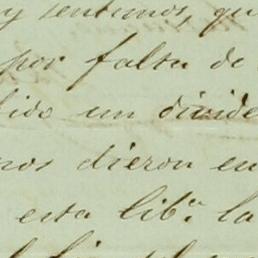 y sentimos, qu
por falta de
lido un divide
nos dieron en
esta lib.ª la